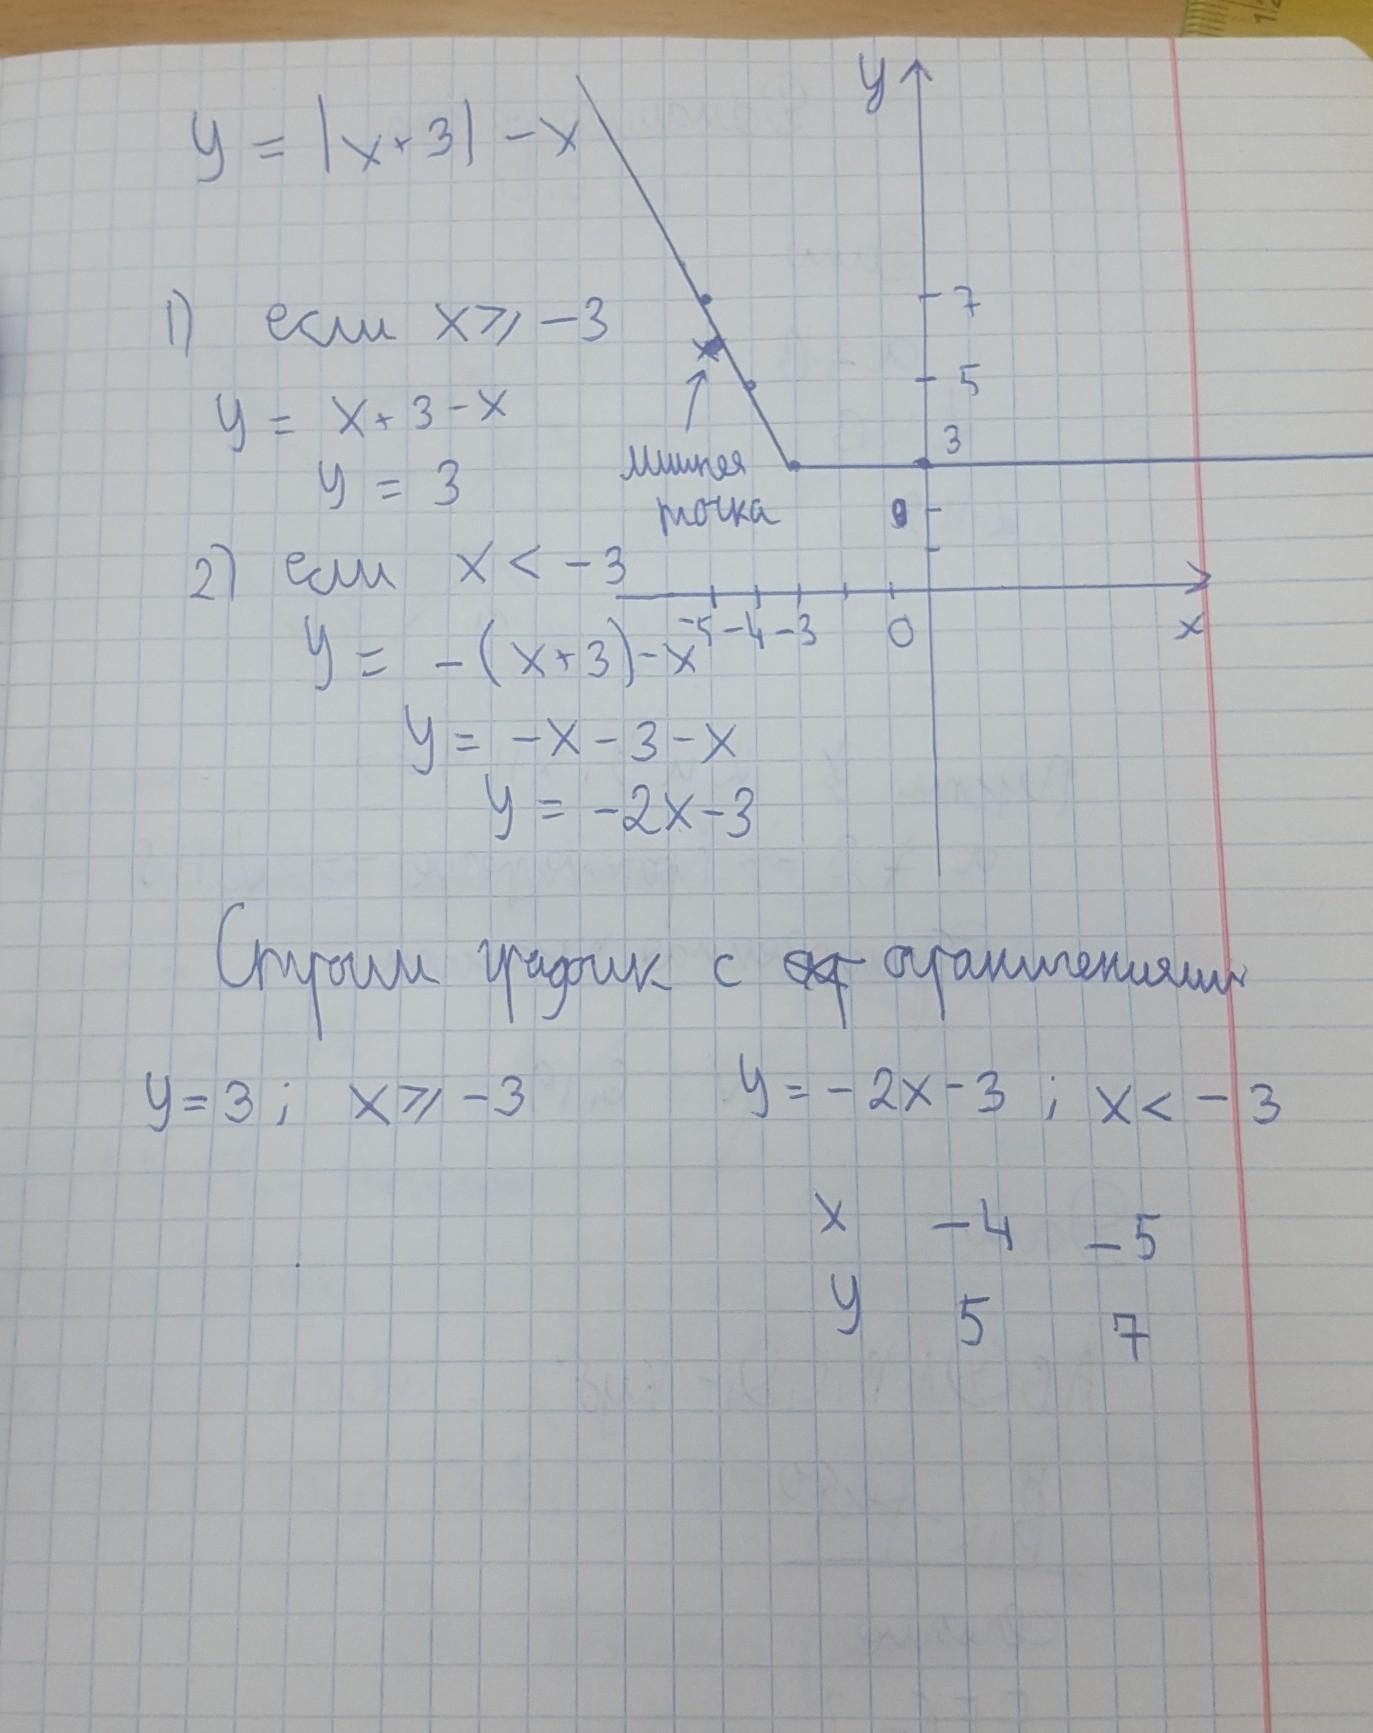 y = |x+3| - x
y
1) если x ⩾ -3
7
y = x+3-x
5
3
y = 3
Лишняя
точка
2) если x < -3
-5 -4 -3 0 x
y = -(x+3)-x
y = -x-3-x
y = -2x-3
Строим график с ограничениями
y=3; x ⩾ -3 y = -2x-3 ; x < -3
x -4 -5
y 5 7